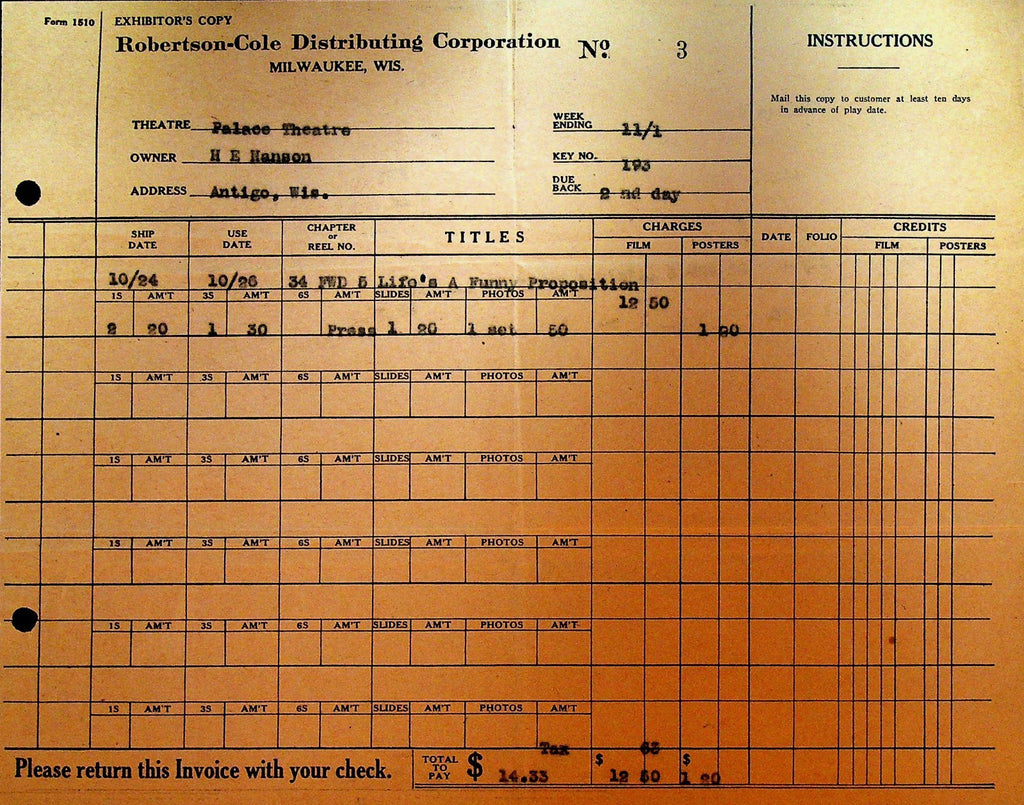 Form 1510 EXHIBITOR'S COPY
Robertson-Cole Distributing Corporation No. 3
MILWAUKEE, WIS.
INSTRUCTIONS
Mail this copy to customer at least ten days
in advance of play date.
THEATRE Palace Theatre WEEK ENDING 11/1
OWNER H E Hanson KEY NO. 193
ADDRESS Antigo, Wis. DUE BACK 2 nd day
SHIP DATE USE DATE CHAPTER or REEL NO. TITLES CHARGES FILM POSTERS DATE FOLIO CREDITS FILM POSTERS
10/24 10/26 34 FWD 5 Life's A Funny Proposition
1S AM'T 3S AM'T 6S AM'T SLIDES AM'T PHOTOS AM'T 12 50
2 20 1 30 Press 1 20 1 set 50 1 20
1S AM'T 3S AM'T 6S AM'T SLIDES AM'T PHOTOS AM'T
1S AM'T 3S AM'T 6S AM'T SLIDES AM'T PHOTOS AM'T
1S AM'T 3S AM'T 6S AM'T SLIDES AM'T PHOTOS AM'T
1S AM'T 3S AM'T 6S AM'T SLIDES AM'T PHOTOS AM'T
1S AM'T 3S AM'T 6S AM'T SLIDES AM'T PHOTOS AM'T
Tax 63
Please return this Invoice with your check. TOTAL TO PAY $ 14.33 $ 12 50 $ 1 20